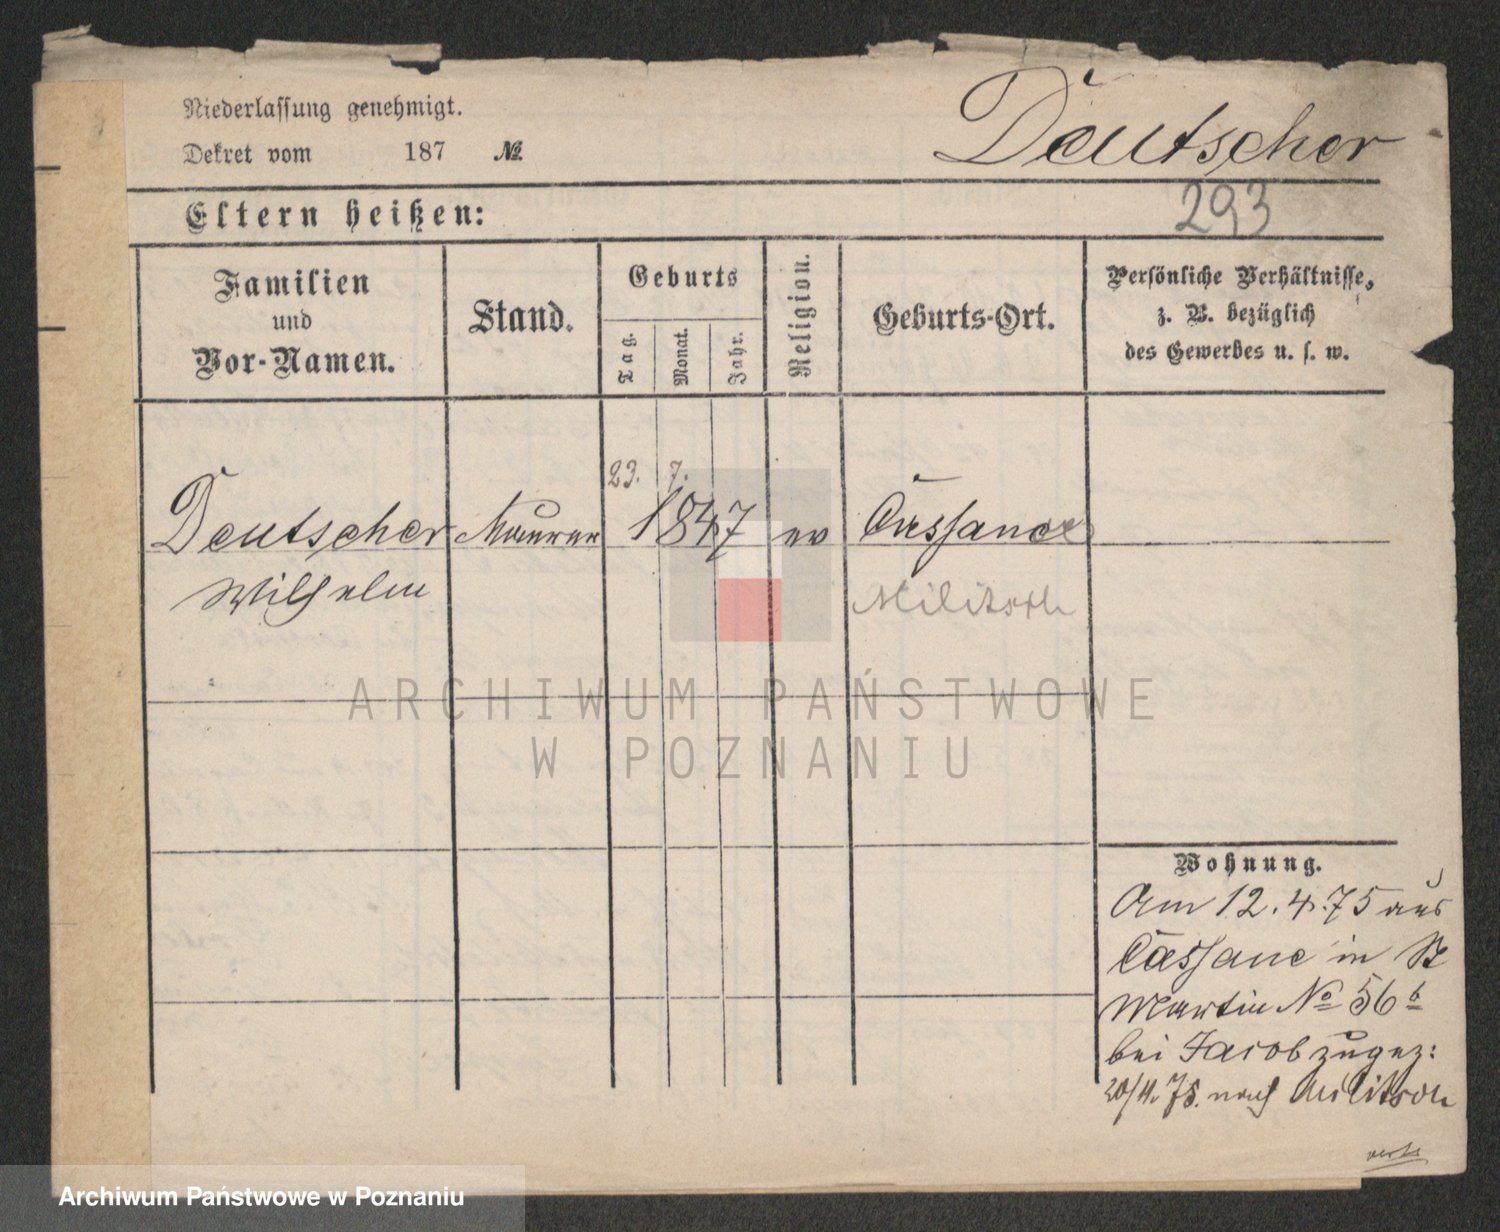 Niederlassung genehmigt.
Dekret vom 187 No
Deutscher
293
Eltern heißen:
Familien
und
Vor-Namen.
Stand.
Geburts
Tag.
Monat.
Jahr.
Religion.
Geburts-Ort.
Persönliche Verhältnisse,
z. B. bezüglich
des Gewerbes u. s. w.
23. 7.
Deutscher Maurer 1847 ev Cassawe
Wilhelm Militsch
ARCHIWUM PAŃSTWOWE
W POZNANIU
Wohnung.
Am 12.4.75 aus
Cassawe in St
Martin No 56 b
bei Jacob zugez:
20/11.75. nach Militsch
Archiwum Państwowe w Poznaniu